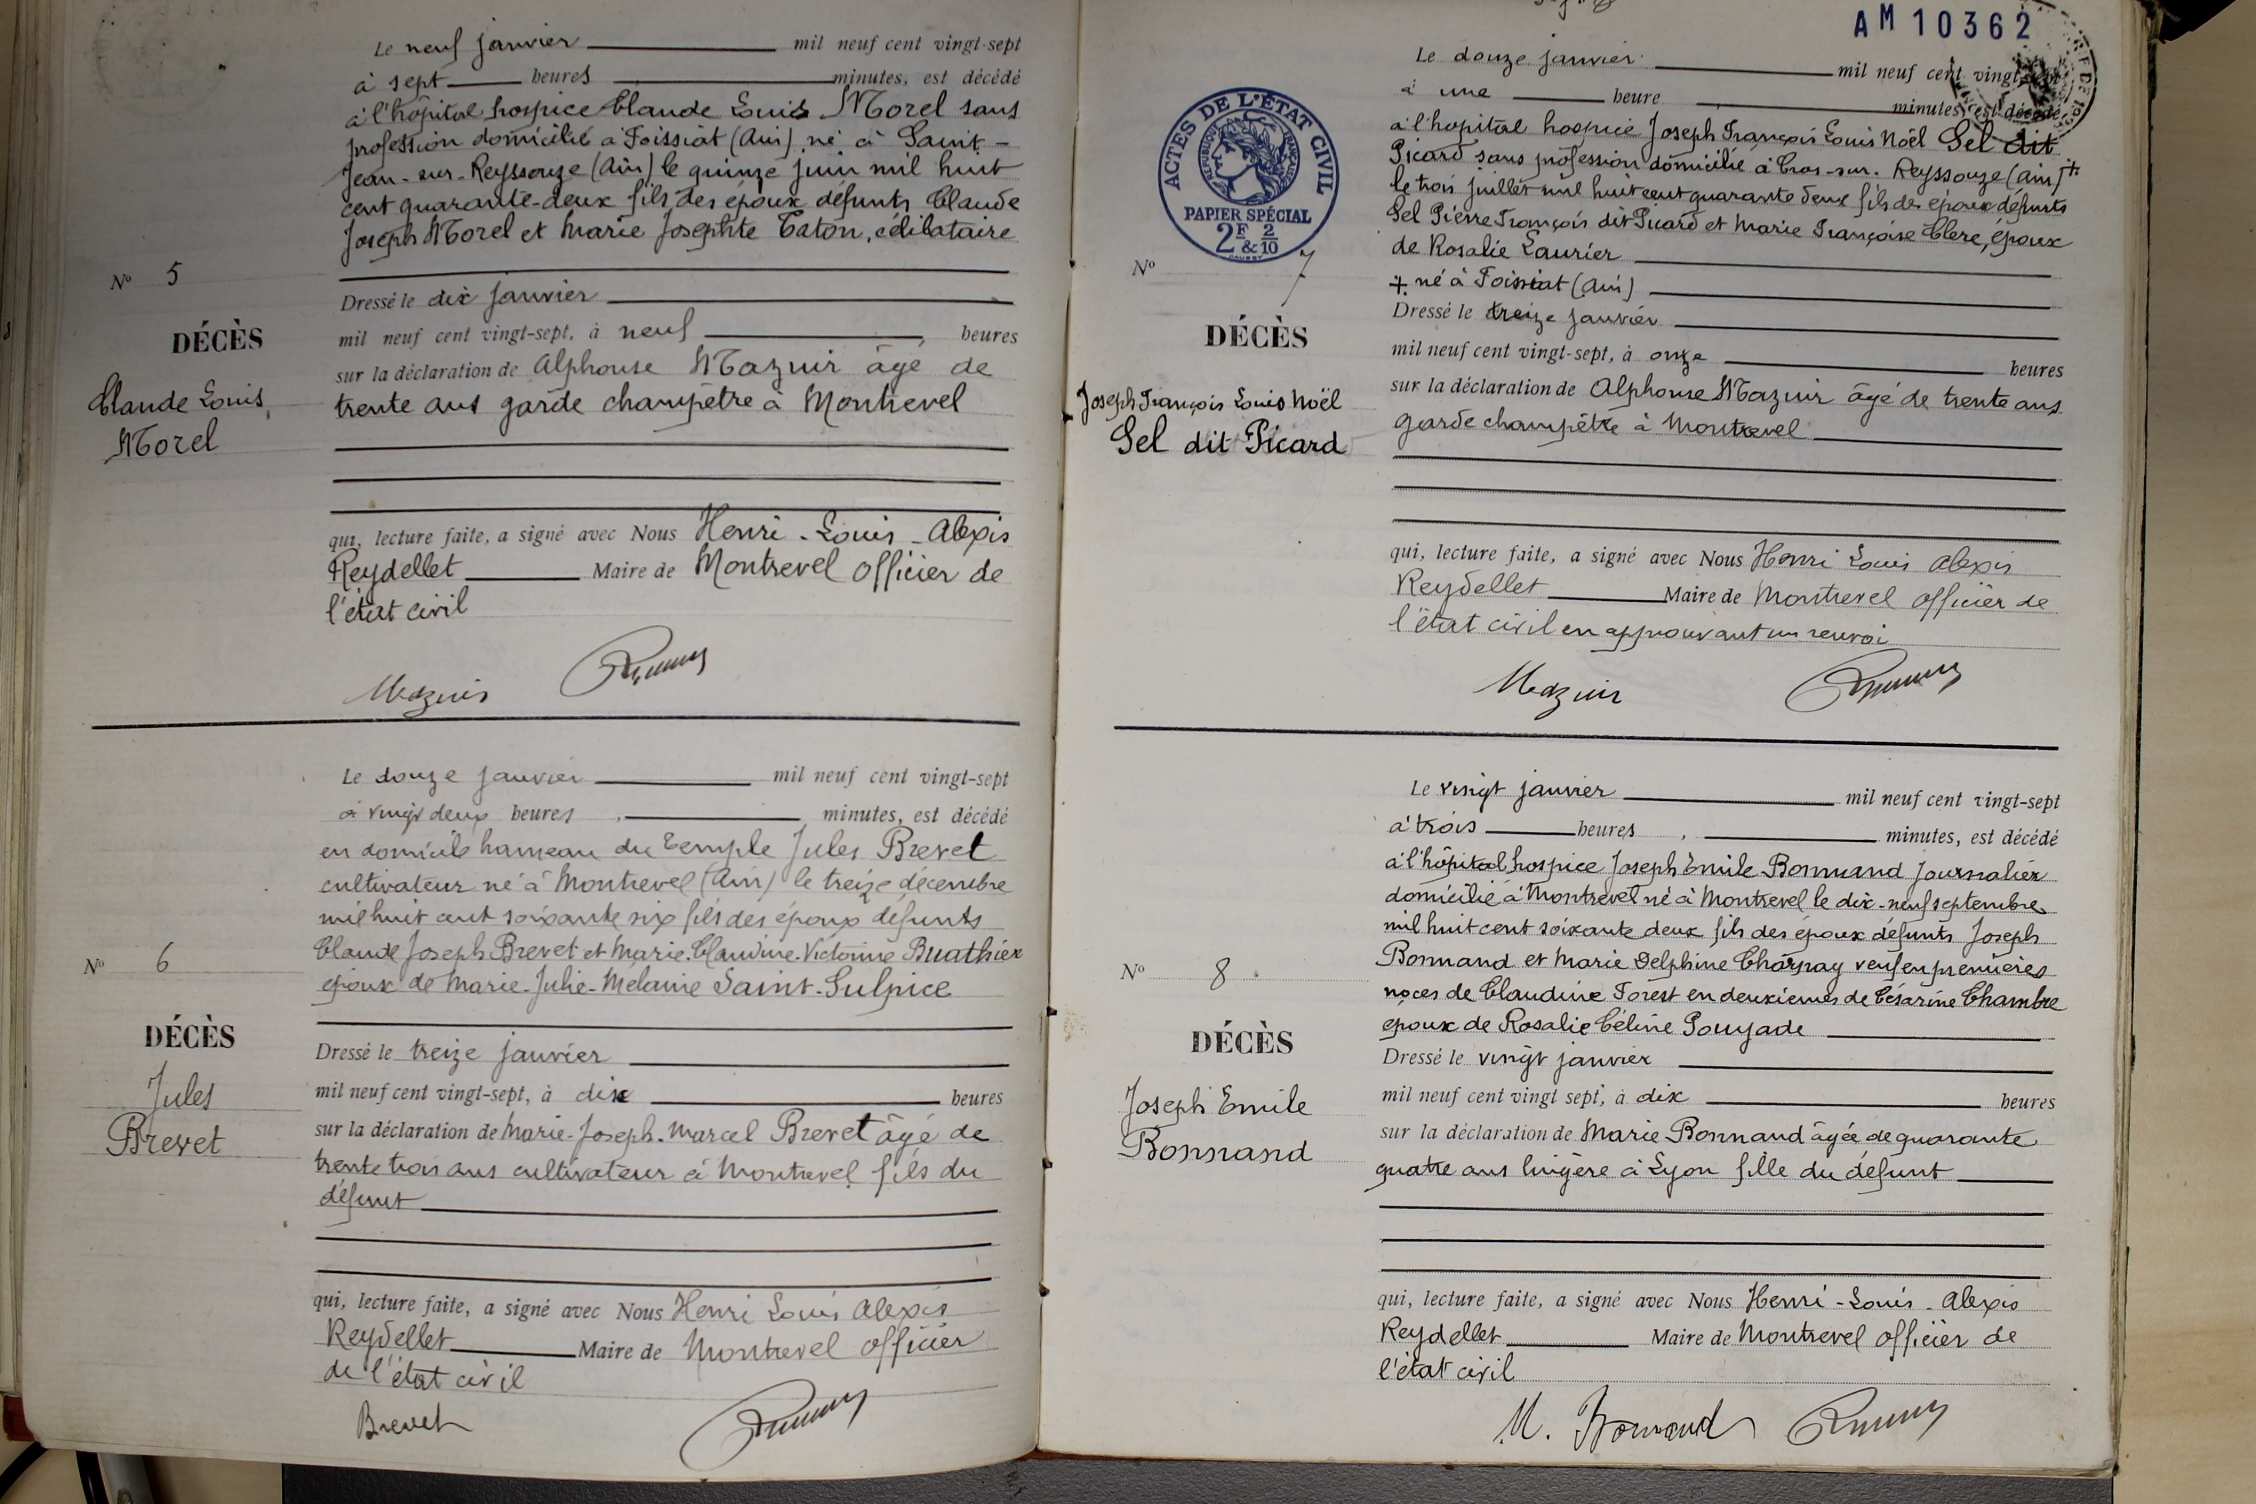 Le neuf janvier mil neuf cent vingt-sept
à sept heures minutes, est décédé
à l'hôpital hospice Claude Louis Morel sans
profession domicilié à Foissiat (Ain) né à Saint-
Jean-sur-Reyssouze (Ain) le quinze juin mil huit
cent quarante-deux fils des époux défunts Claude
Joseph Morel et Marie Josephte Caton, célibataire
No 5
DÉCÈS
Claude Louis
Morel
Dressé le dix janvier
mil neuf cent vingt-sept, à neuf heures
sur la déclaration de Alphonse Mazuir âgé de
trente ans garde champêtre à Montrevel
qui, lecture faite, a signé avec Nous Henri-Louis-Alexis
Reydellet Maire de Montrevel officier de
l'état civil
Mazuir
Le douze janvier mil neuf cent vingt-sept
à vingt deux heures, minutes, est décédé
en domicile hameau du Temple Jules Brevet
cultivateur né à Montrevel (Ain) le treize décembre
mil huit cent soixante six fils des époux défunts
Claude Joseph Brevet et Marie-Claudine-Victorine Buathier
époux de Marie-Julie-Mélanie Saint-Sulpice
No 6
DÉCÈS
Jules
Brevet
Dressé le treize janvier
mil neuf cent vingt-sept, à dix heures
sur la déclaration de Marie-Joseph-Marcel Brevet âgé de
trente trois ans cultivateur à Montrevel fils du
défunt
qui, lecture faite, a signé avec Nous Henri Louis Alexis
Reydellet Maire de Montrevel officier
de l'état civil
Brevet
AM 10362
ACTES DE L'ÉTAT CIVIL
RÉPUBLIQUE FRANÇAISE
PAPIER SPÉCIAL
2F & 2/10
Le douze janvier mil neuf cent vingt-sept
à une heure minutes, est décédé
à l'hopital hospice Joseph François Louis Noël Gel dit
Picard sans profession domicilié à Cras-sur-Reyssouze (Ain) +
le trois juillet mil huit cent quarante deux fils des époux défunts
Gel Pierre François dit Picard et Marie Françoise Clerc, époux
de Rosalie Laurier
+ né à Foissiat (Ain)
No 7
DÉCÈS
Joseph François Louis Noël
Gel dit Picard
Dressé le treize janvier
mil neuf cent vingt-sept, à onze heures
sur la déclaration de Alphonse Mazuir âgé de trente ans
garde champêtre à Montrevel
qui, lecture faite, a signé avec Nous Henri Louis Alexis
Reydellet Maire de Montrevel officier de
l'état civil en approuvant un renvoi
Mazuir
Le vingt janvier mil neuf cent vingt-sept
à trois heures, minutes, est décédé
à l'hôpital hospice Joseph Emile Bonnand journalier
domicilié à Montrevel né à Montrevel le dix-neuf septembre
mil huit cent soixante deux fils des époux défunts Joseph
Bonnand et Marie Delphine Charnay veuf en premières
noces de Claudine Forest en deuxièmes de Césarine Chambre
époux de Rosalie Céline Pouyade
No 8
DÉCÈS
Joseph Emile
Bonnand
Dressé le vingt janvier
mil neuf cent vingt sept, à dix heures
sur la déclaration de Marie Bonnand âgée de quarante
quatre ans lingère à Lyon fille du défunt
qui, lecture faite, a signé avec Nous Henri-Louis-Alexis
Reydellet Maire de Montrevel officier de
l'état civil
M. Bonnand